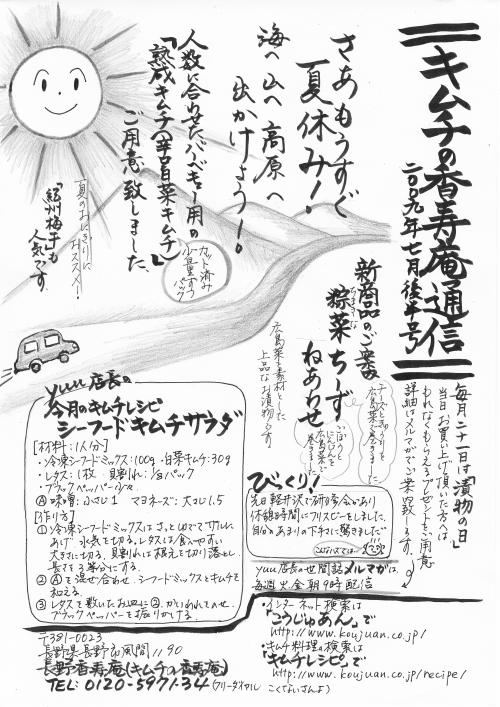 キムチの香寿庵通信
二〇〇九年七月後半号
さあもうすぐ
夏休み!
海へ山へ高原へ
出かけよう!。
人数に合わせたバーベキュー用の
「熟成キムチ(辛口白菜キムチ)」
ご用意致しました。
カット済み
小分け
パック
夏のおにぎりに
おススメ!
「紀州梅干」も
人気です。
毎月二十一日は「漬物の日」
当日お買い上げ頂いた方へは
もれなくもらえるプレゼントをご用意
詳細はメルマガでご案内致します。
新商品のご案内
ちーず
ねあわせ
広島菜を素材とした
上品なお漬物です。
yuu店長の
今月のキムチレシピ
シーフードキムチサラダ
[材料:1人分]
・冷凍シーフードミックス:100g ・白菜キムチ:30g
・レタス:1枚 貝割れ:1/3パック
・ブラックペッパー少々
Ⓐ味噌:小さじ1 マヨネーズ:大さじ1.5
[作り方]
①冷凍シーフードミックスはさっとゆでてザルに
あげ、水気を切る。レタスは食べやすい
大きさに切る。貝割れは根元を切り落とし、
長さを3等分にする。
②Ⓐを混ぜ合わせ、シーフードミックスとキムチを
和える。
③レタスを敷いたお皿に②、かいわれをのせ、
ブラックペッパーを振りかける。
びっくり!
先日軽井沢で研修会があり
休憩時間にフリスビーをしました。
自分のあまりの下手に驚きました
yuu店長の世間話メルマガは、
毎週火、金朝9時配信
・インターネット検索は
「こうじゅあん」で
http://www.koujuan.co.jp/
・キムチ料理の検索は
「キムチレシピ」で
http://www.koujuan.co.jp/recipe/
〒381-0023
長野県長野市風間1190
長野香寿庵(キムチの香寿庵)
TEL: 0120-5971-34 (フリーダイヤル こくないさんよ)